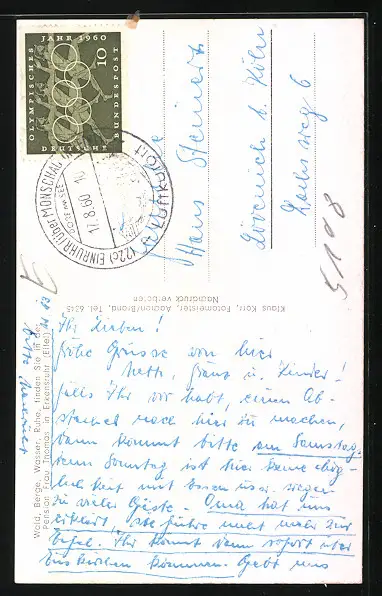 JAHR 1960
OLYMPISCHES
10
DEUTSCHE
BUNDESPOST
(22c) EINRUHR über MONSCHAU
17.8.60
LUFTKURORT
Familie
Hans Steiners
Lövenich b. Köln
5108
Klaus Korr, Fotomeister, Aachen/Brand, Tel. 6245
Nachdruck verboten
Wald, Berge, Wasser, Ruhe, finden Sie in der
Pension Frau Thomas in Erkensruhr (Eifel)
Ihr Lieben!
Frohe Grüsse von hier
Kinder!
falls Ihr vor habt, einen Ab-
stecher nach hier zu machen,
dann kommt bitte am Samstag,
denn Sonntag ist hier keine Mög-
lichkeit mit Essen usw. wegen
zu vieler Gäste. Oma hat uns
erklärt, sie führe nicht mehr zur
Eifel. Ihr könnt dann sofort über
Euskirchen kommen. Gebt uns
bitte